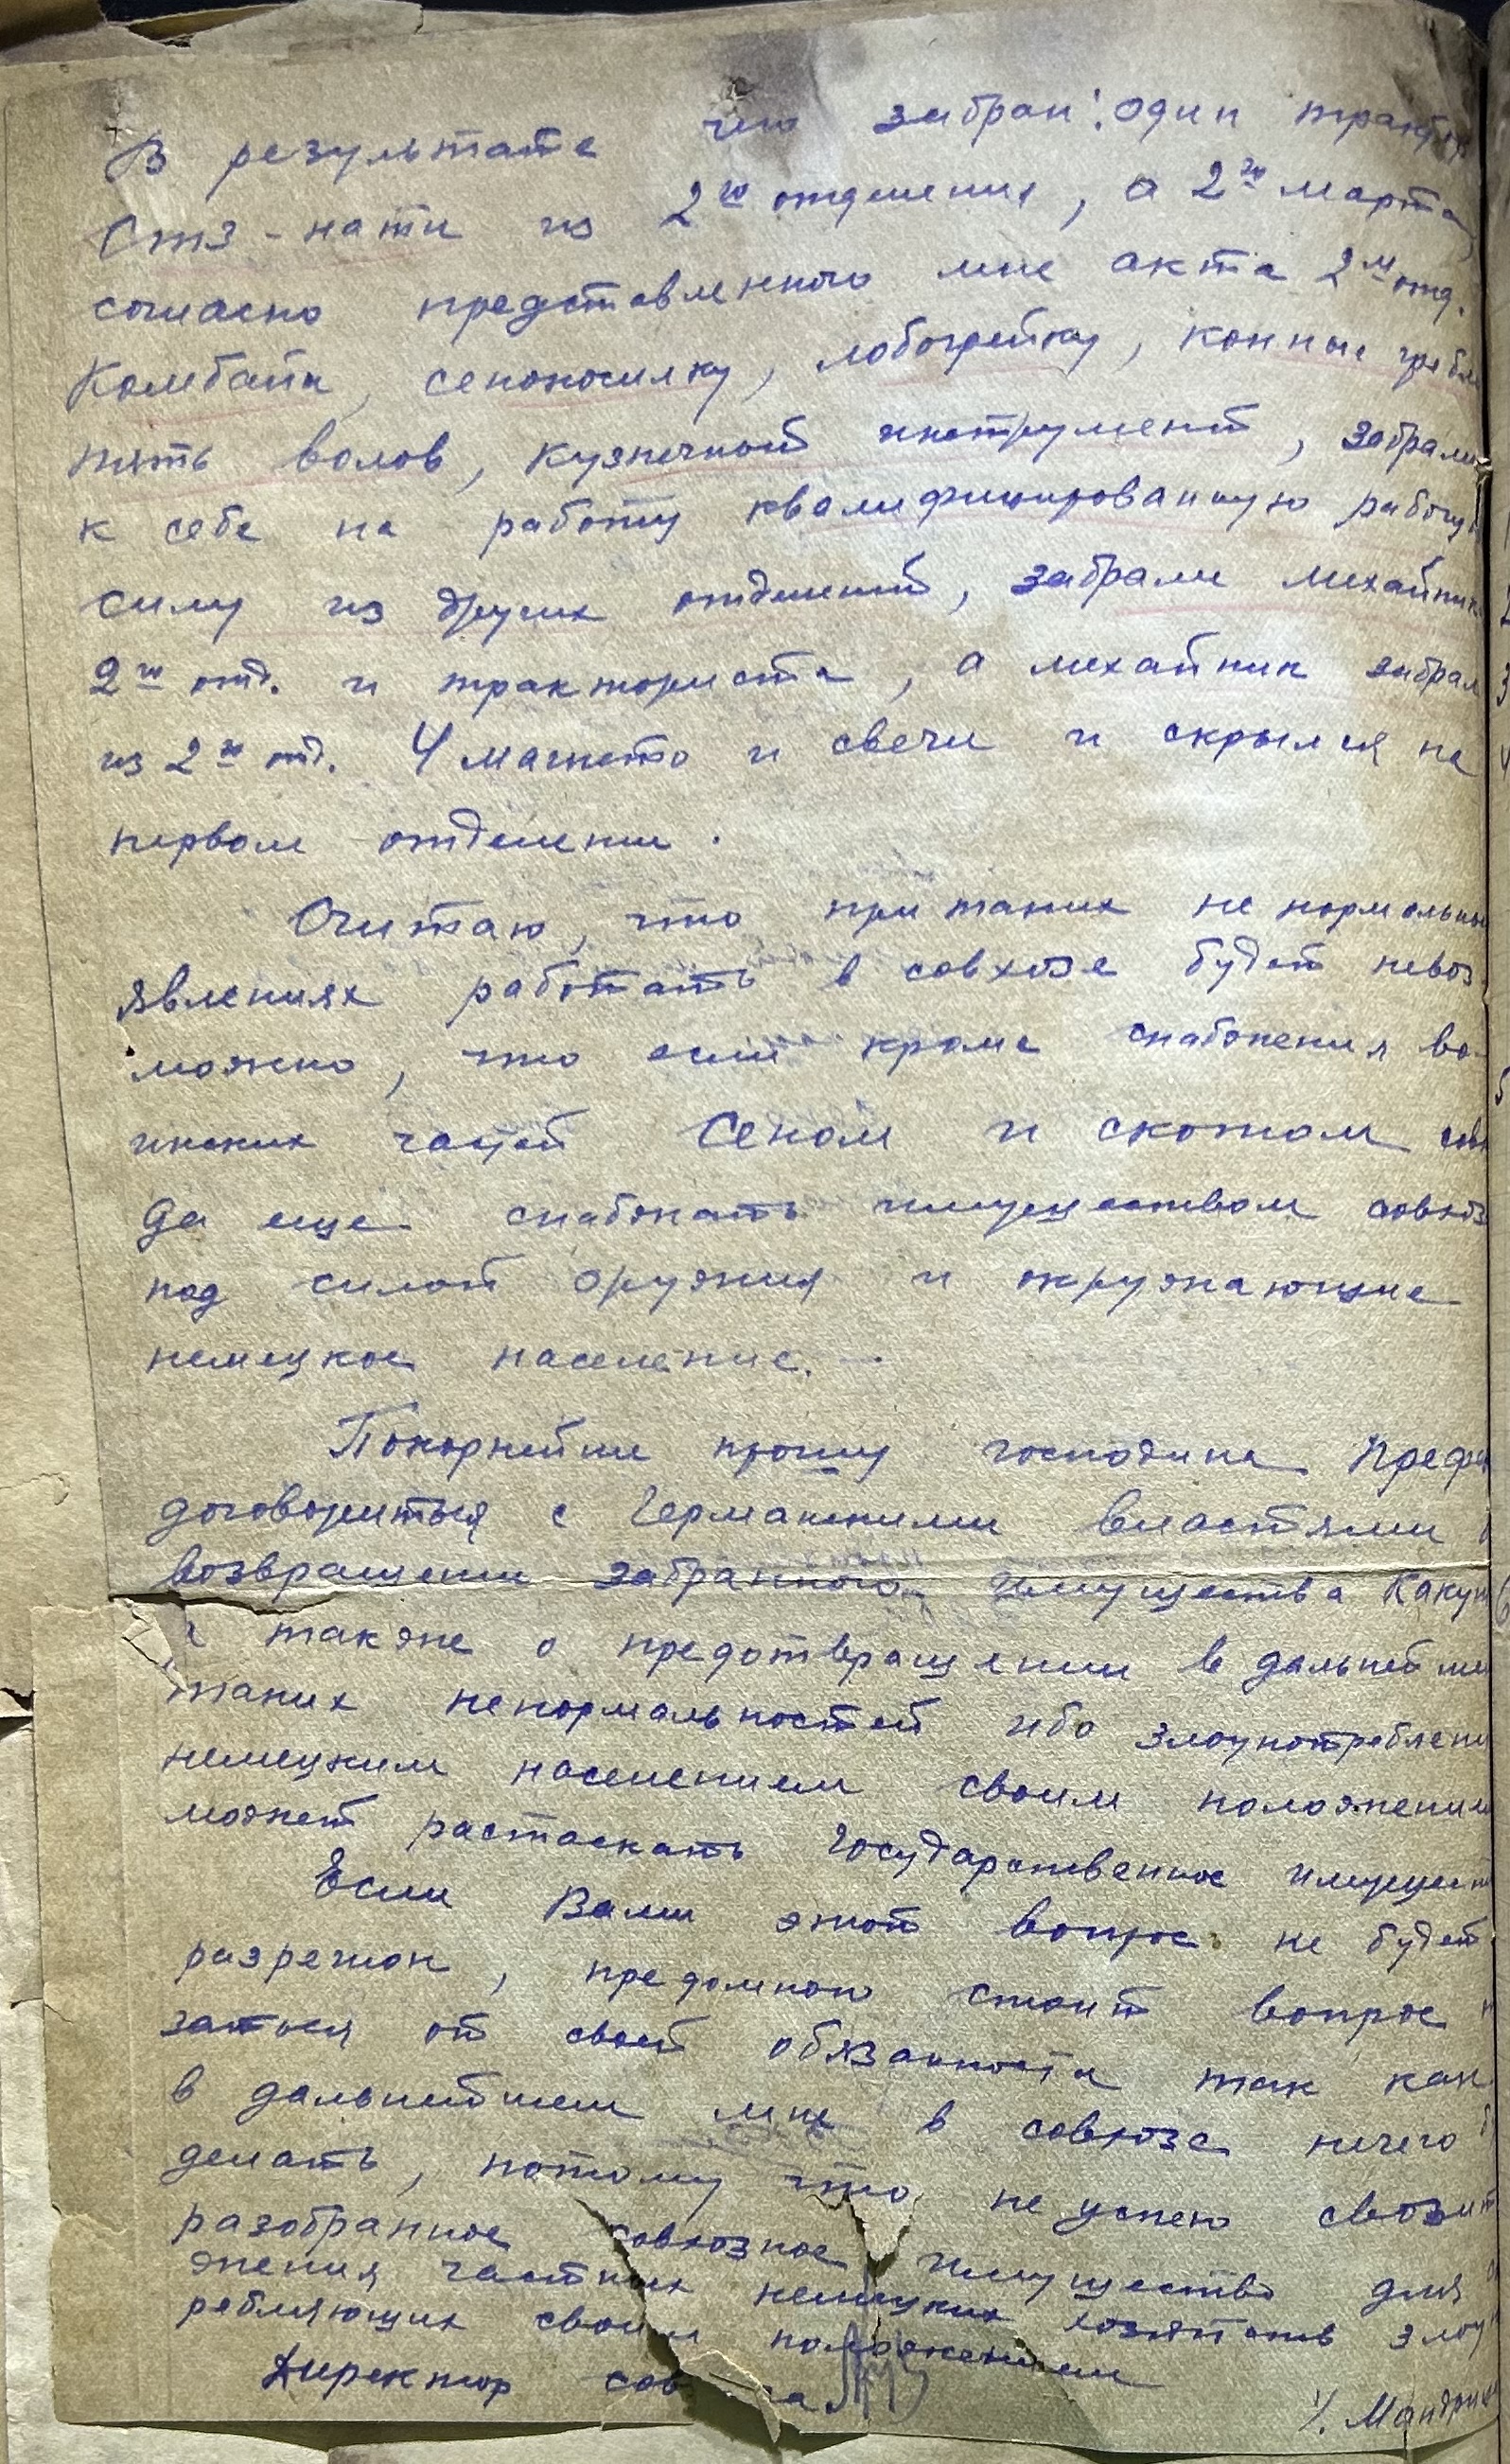 В результате чего забран: один трактор
СТЗ-нати из 2го отделения, а 2го марта,
согласно представленного мне акта 2м отд.
Комбайн, сенокосилку, лобогрейку, конные грабли
пять волов, кузнечный инструмент, забрали
к себе на работу квалифицированную рабочую
силу из других отделений, забрали механика
2го отд. и тракториста, а механик забрал
из 2го отд. 4 магнето и свечи и скрылся на
первом отделении.
Считаю, что при таких не нормальных
явлениях работать в совхозе будет невоз-
можно, что если кроме снабжения во-
инских частей сеном и скотом
да еще снабжать имуществом совхоз
под силой оружия и окружающие
немецкое население. —
Покорнейши прошу господина Префек
договориться с Германскими властями о
возвращении забранного имущества
а также о предотвращении в дальнейшем
таких ненормальностей ибо злоупотреблени
немецким населением своим положением
может растаскать Государственное имущест
Если Вами этот вопрос не будет
разрешон, предомною стоит вопрос
заться от своей обязаности так как
в дальнейшем мне в совхозе нечего
делать, потому что не успею свозит
разобранное совхозное имущество для
жения частных немецких хозяйств злоу
ребляющих своим положением
Директор сов за